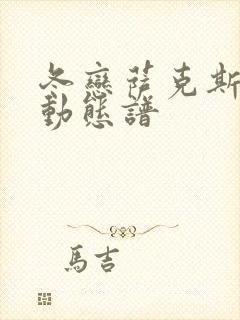 冬戀薩克斯
動態譜
馬吉